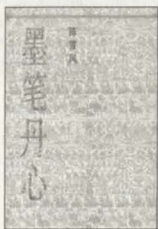 墨笔丹心